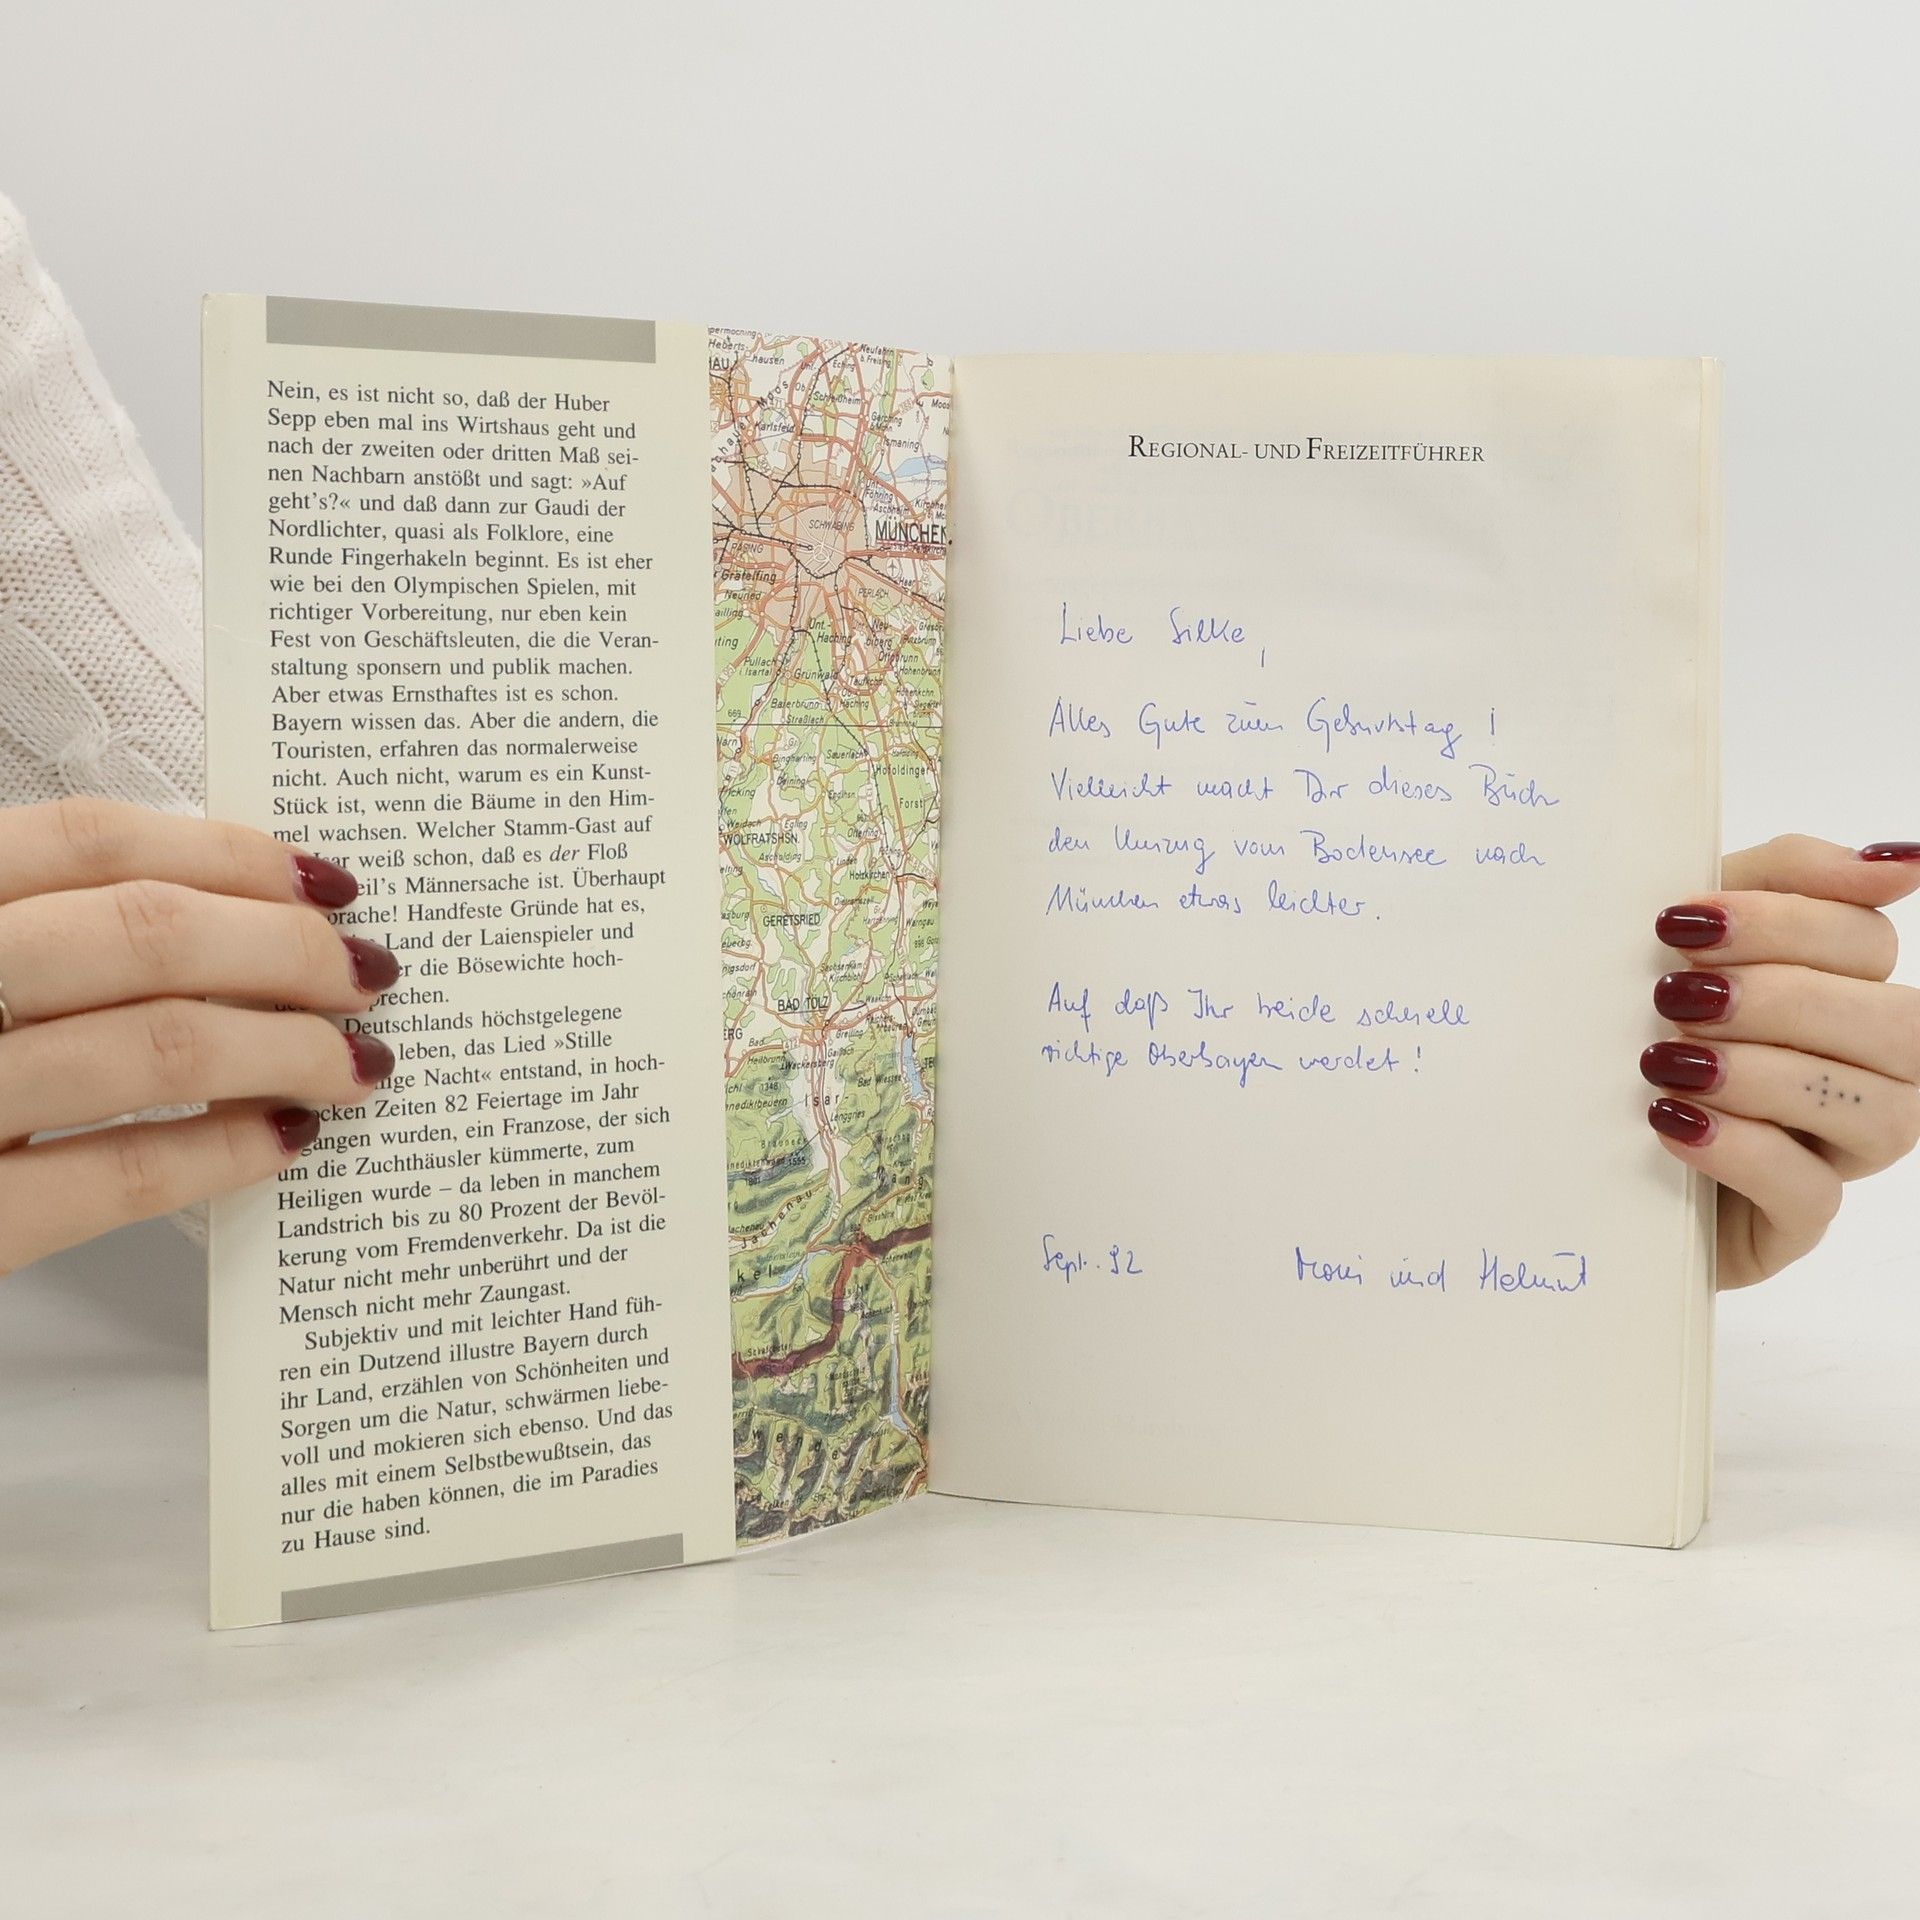 Nein, es ist nicht so, daß der Huber
Sepp eben mal ins Wirtshaus geht und
nach der zweiten oder dritten Maß sei-
nen Nachbarn anstößt und sagt: »Auf
geht's?« und daß dann zur Gaudi der
Nordlichter, quasi als Folklore, eine
Runde Fingerhakeln beginnt. Es ist eher
wie bei den Olympischen Spielen, mit
richtiger Vorbereitung, nur eben kein
Fest von Geschäftsleuten, die die Veran-
staltung sponsern und publik machen.
Aber etwas Ernsthaftes ist es schon.
Bayern wissen das. Aber die andern, die
Touristen, erfahren das normalerweise
nicht. Auch nicht, warum es ein Kunst-
Stück ist, wenn die Bäume in den Him-
mel wachsen. Welcher Stamm-Gast auf
weiß schon, daß es der Floß
eil's Männersache ist. Überhaupt
prache! Handfeste Gründe hat es,
Land der Laienspieler und
er die Bösewichte hoch-
prechen.
Deutschlands höchstgelegene
leben, das Lied »Stille
ige Nacht« entstand, in hoch-
ocken Zeiten 82 Feiertage im Jahr
gangen wurden, ein Franzose, der sich
um die Zuchthäusler kümmerte, zum
Heiligen wurde – da leben in manchem
Landstrich bis zu 80 Prozent der Bevöl-
kerung vom Fremdenverkehr. Da ist die
Natur nicht mehr unberührt und der
Mensch nicht mehr Zaungast.
Subjektiv und mit leichter Hand füh-
ren ein Dutzend illustre Bayern durch
ihr Land, erzählen von Schönheiten und
Sorgen um die Natur, schwärmen liebe-
voll und mokieren sich ebenso. Und das
alles mit einem Selbstbewußtsein, das
nur die haben können, die im Paradies
zu Hause sind.
Karlsfeld
Ismaning
SCHWABING
MÜNCHEN
PASING
Gräfelfing
Neuried
PERLACH
Pullach
Grünwald
Baierbrunn
Straßlach
Sauerlach
Hofoldinger
Forst
Egling
WOLFRATSHSN.
Ascholding
Holzkirchen
GERETSRIED
BAD TÖLZ
Bad Wiessee
Isar-
Lenggries
Jachenau
REGIONAL- UND FREIZEITFÜHRER
Liebe Silke,
Alles Gute zum Geburtstag!
Vielleicht macht Dir dieses Buch
den Umzug vom Bodensee nach
München etwas leichter.
Auf daß Ihr beide schnell
richtige Oberbayern werdet!
Sept. 92
Moni und Helmut